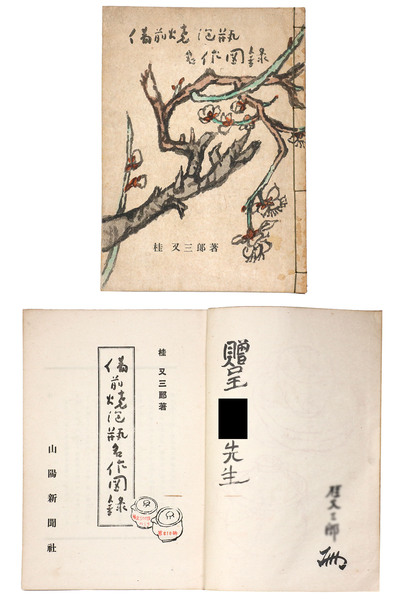 備前燒泡瓶
名作図録
桂 又三郎著
贈呈 先生
桂又三郎
桂 又三郎著
備前燒泡瓶名作図録
山陽新聞社